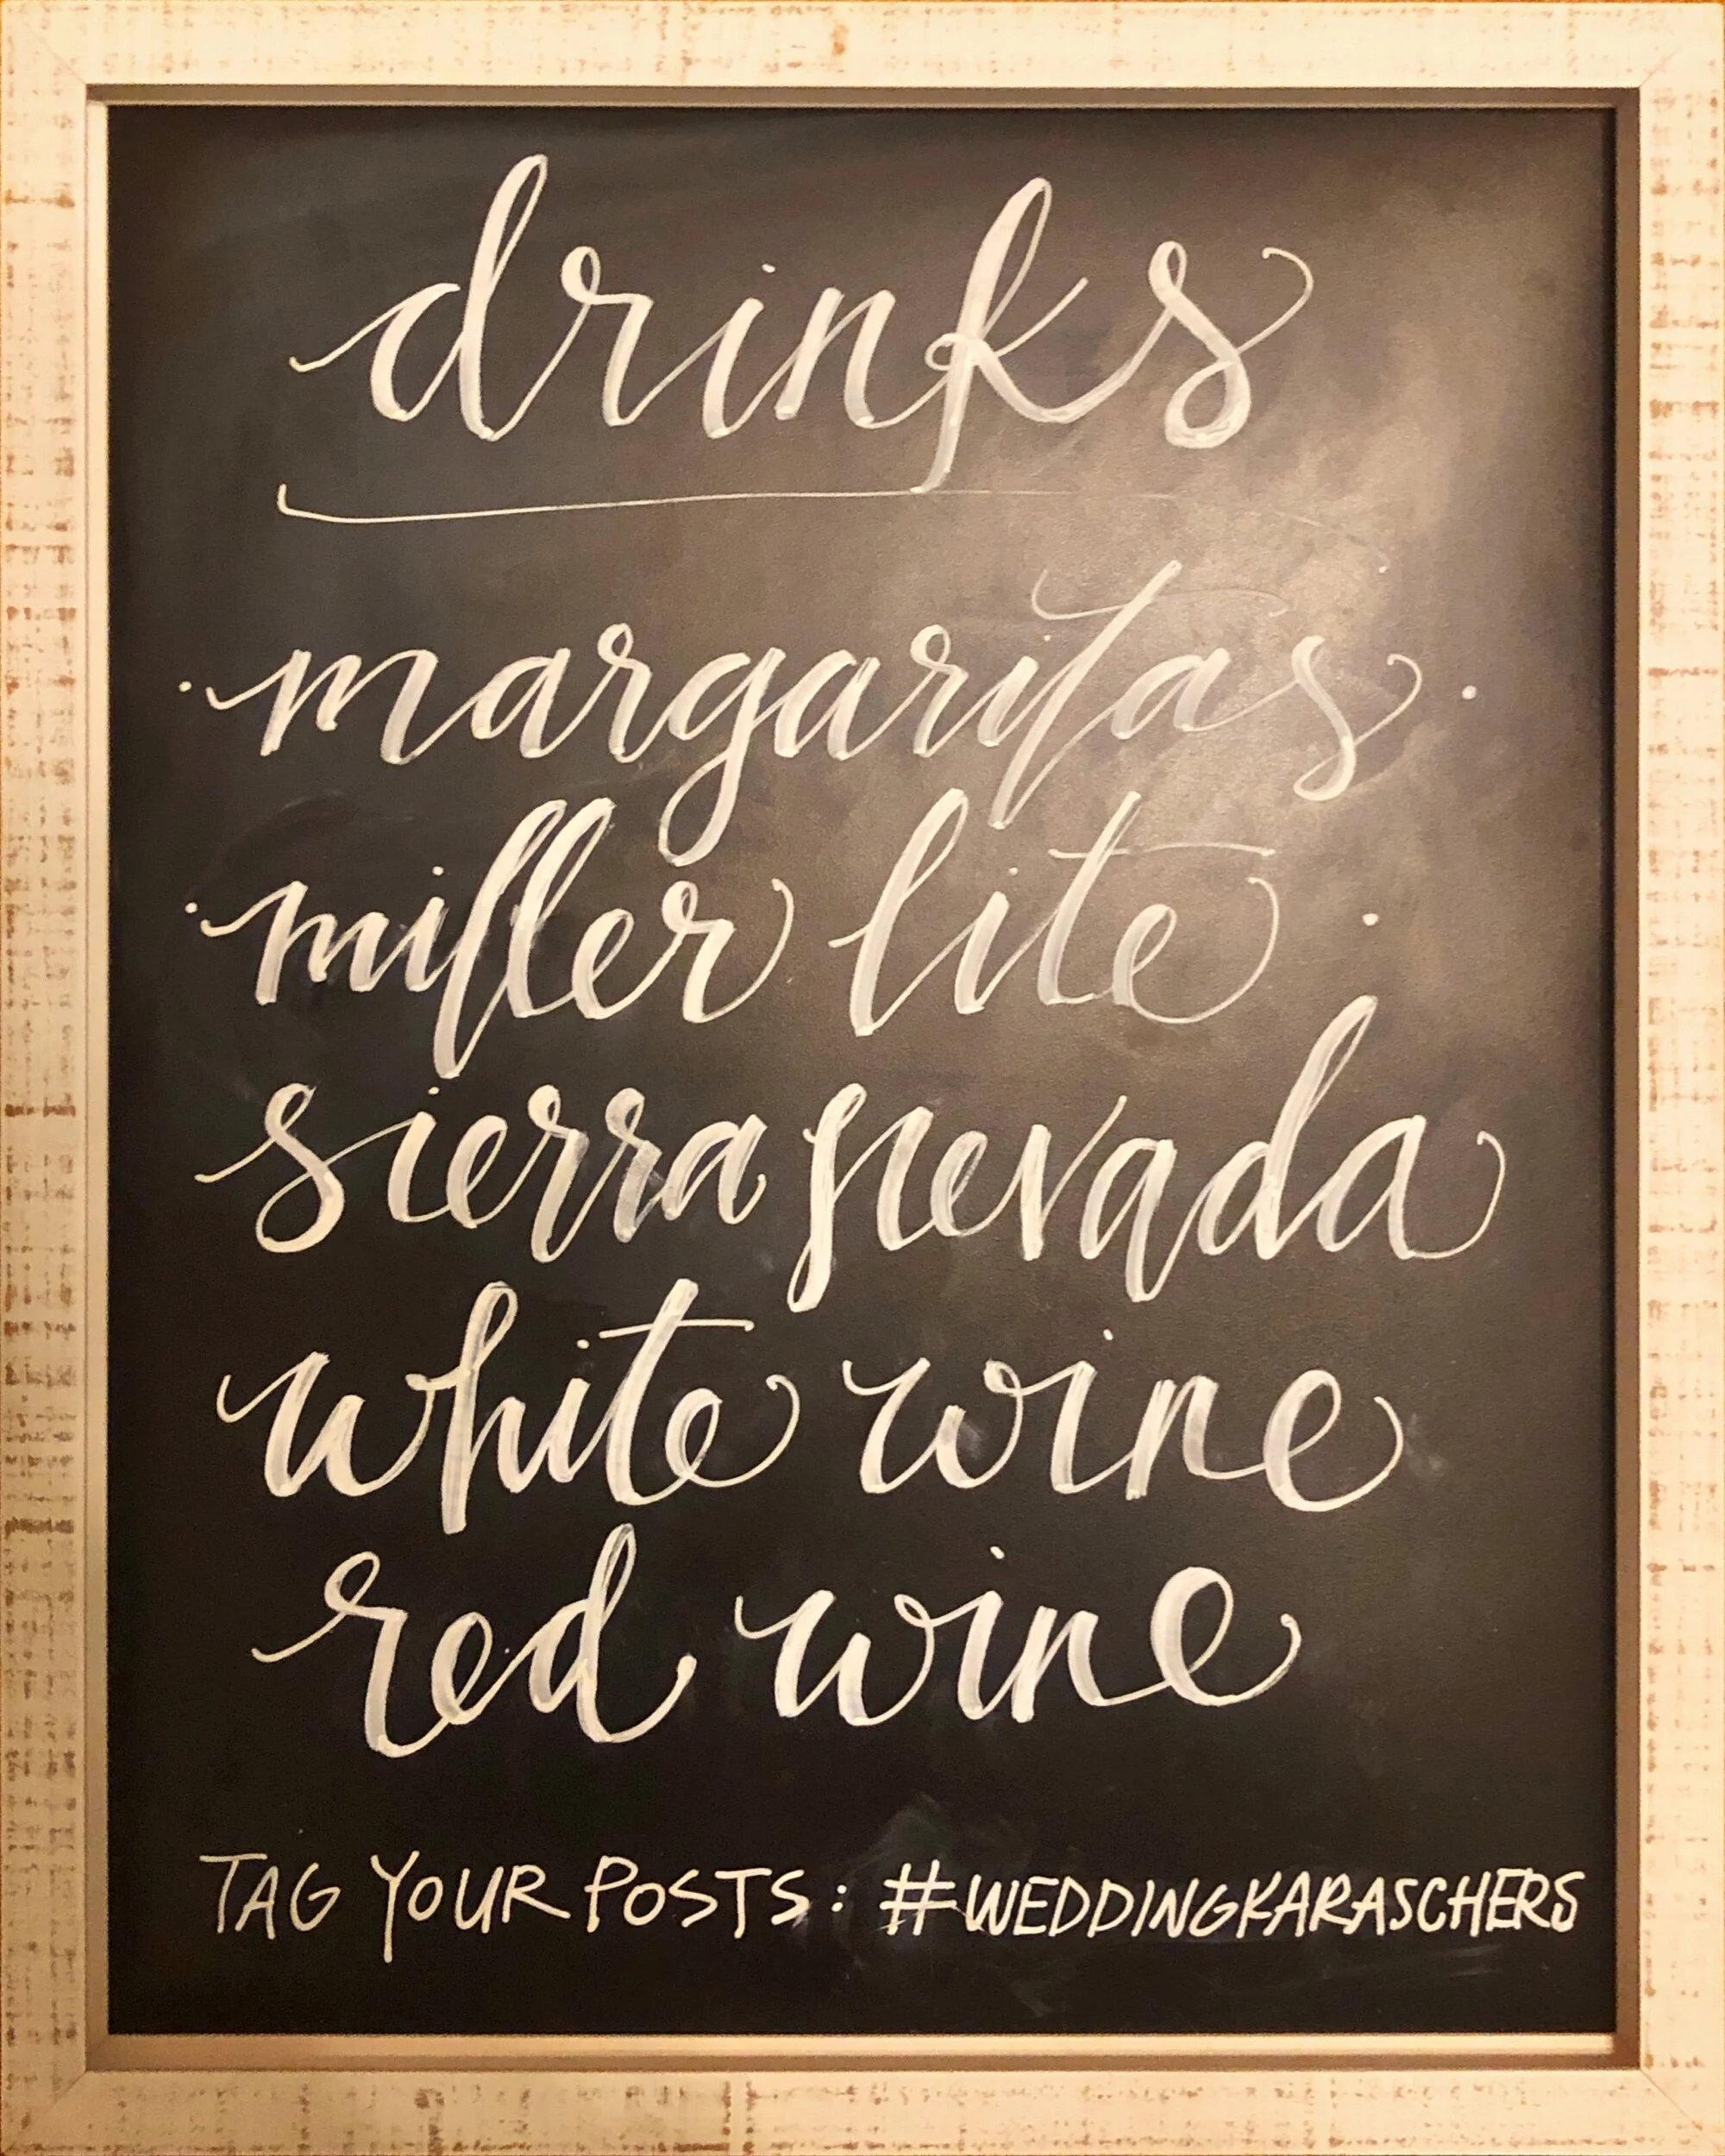 drinks
· margaritas ·
· miller lite ·
sierra nevada
white wine
red wine
TAG YOUR POSTS: #WEDDINGKARASCHERS